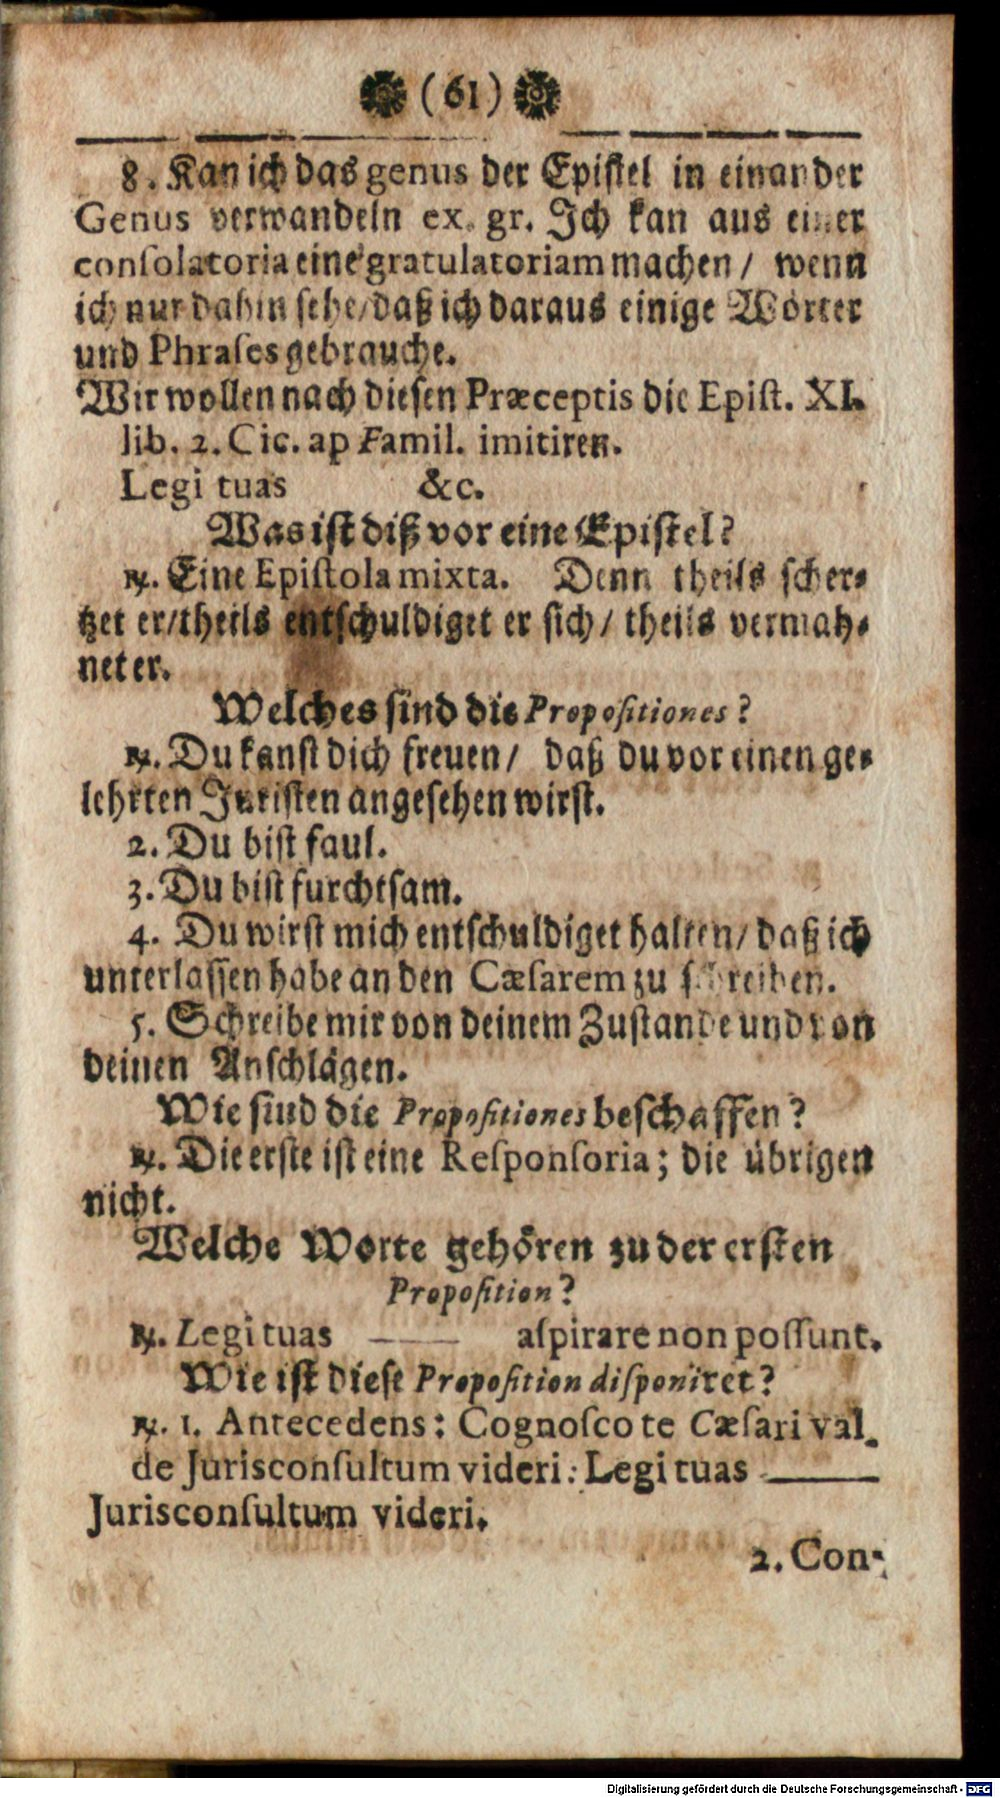 (61)
8. Kan ich das genus der Epistel in einander
Genus verwandeln ex. gr. Ich kan aus einer
consolatoria eine gratulatoriam machen / wenn
ich nur dahin sehe / daß ich daraus einige Wörter
und Phrases gebrauche.
Wir wollen nach diesen Præceptis die Epist. XI.
lib. 2. Cic. ap Famil. imitiren.
Legi tuas &c.
Was ist diß vor eine Epistel?
℞. Eine Epistola mixta. Denn theils scher-
tzet er / theils entschuldiget er sich / theils vermah-
net er.
Welches sind die Propositiones?
℞. Du kanst dich freuen / daß du vor einen ge-
lehrten Juristen angesehen wirst.
2. Du bist faul.
3. Du bist furchtsam.
4. Du wirst mich entschuldiget halten / daß ich
unterlassen habe an den Cæsarem zu schreiben.
5. Schreibe mir von deinem Zustande und von
deinen Anschlägen.
Wie sind die Propositiones beschaffen?
℞. Die erste ist eine Responsoria; die übrigen
nicht.
Welche Worte gehören zu der ersten
Proposition?
℞. Legi tuas —— aspirare non possunt.
Wie ist diese Proposition disponiret?
℞. 1. Antecedens: Cognosco te Cæsari val-
de Jurisconsultum videri: Legi tuas ——
Jurisconsultum videri.
2. Con-
Digitalisierung gefördert durch die Deutsche Forschungsgemeinschaft - DFG